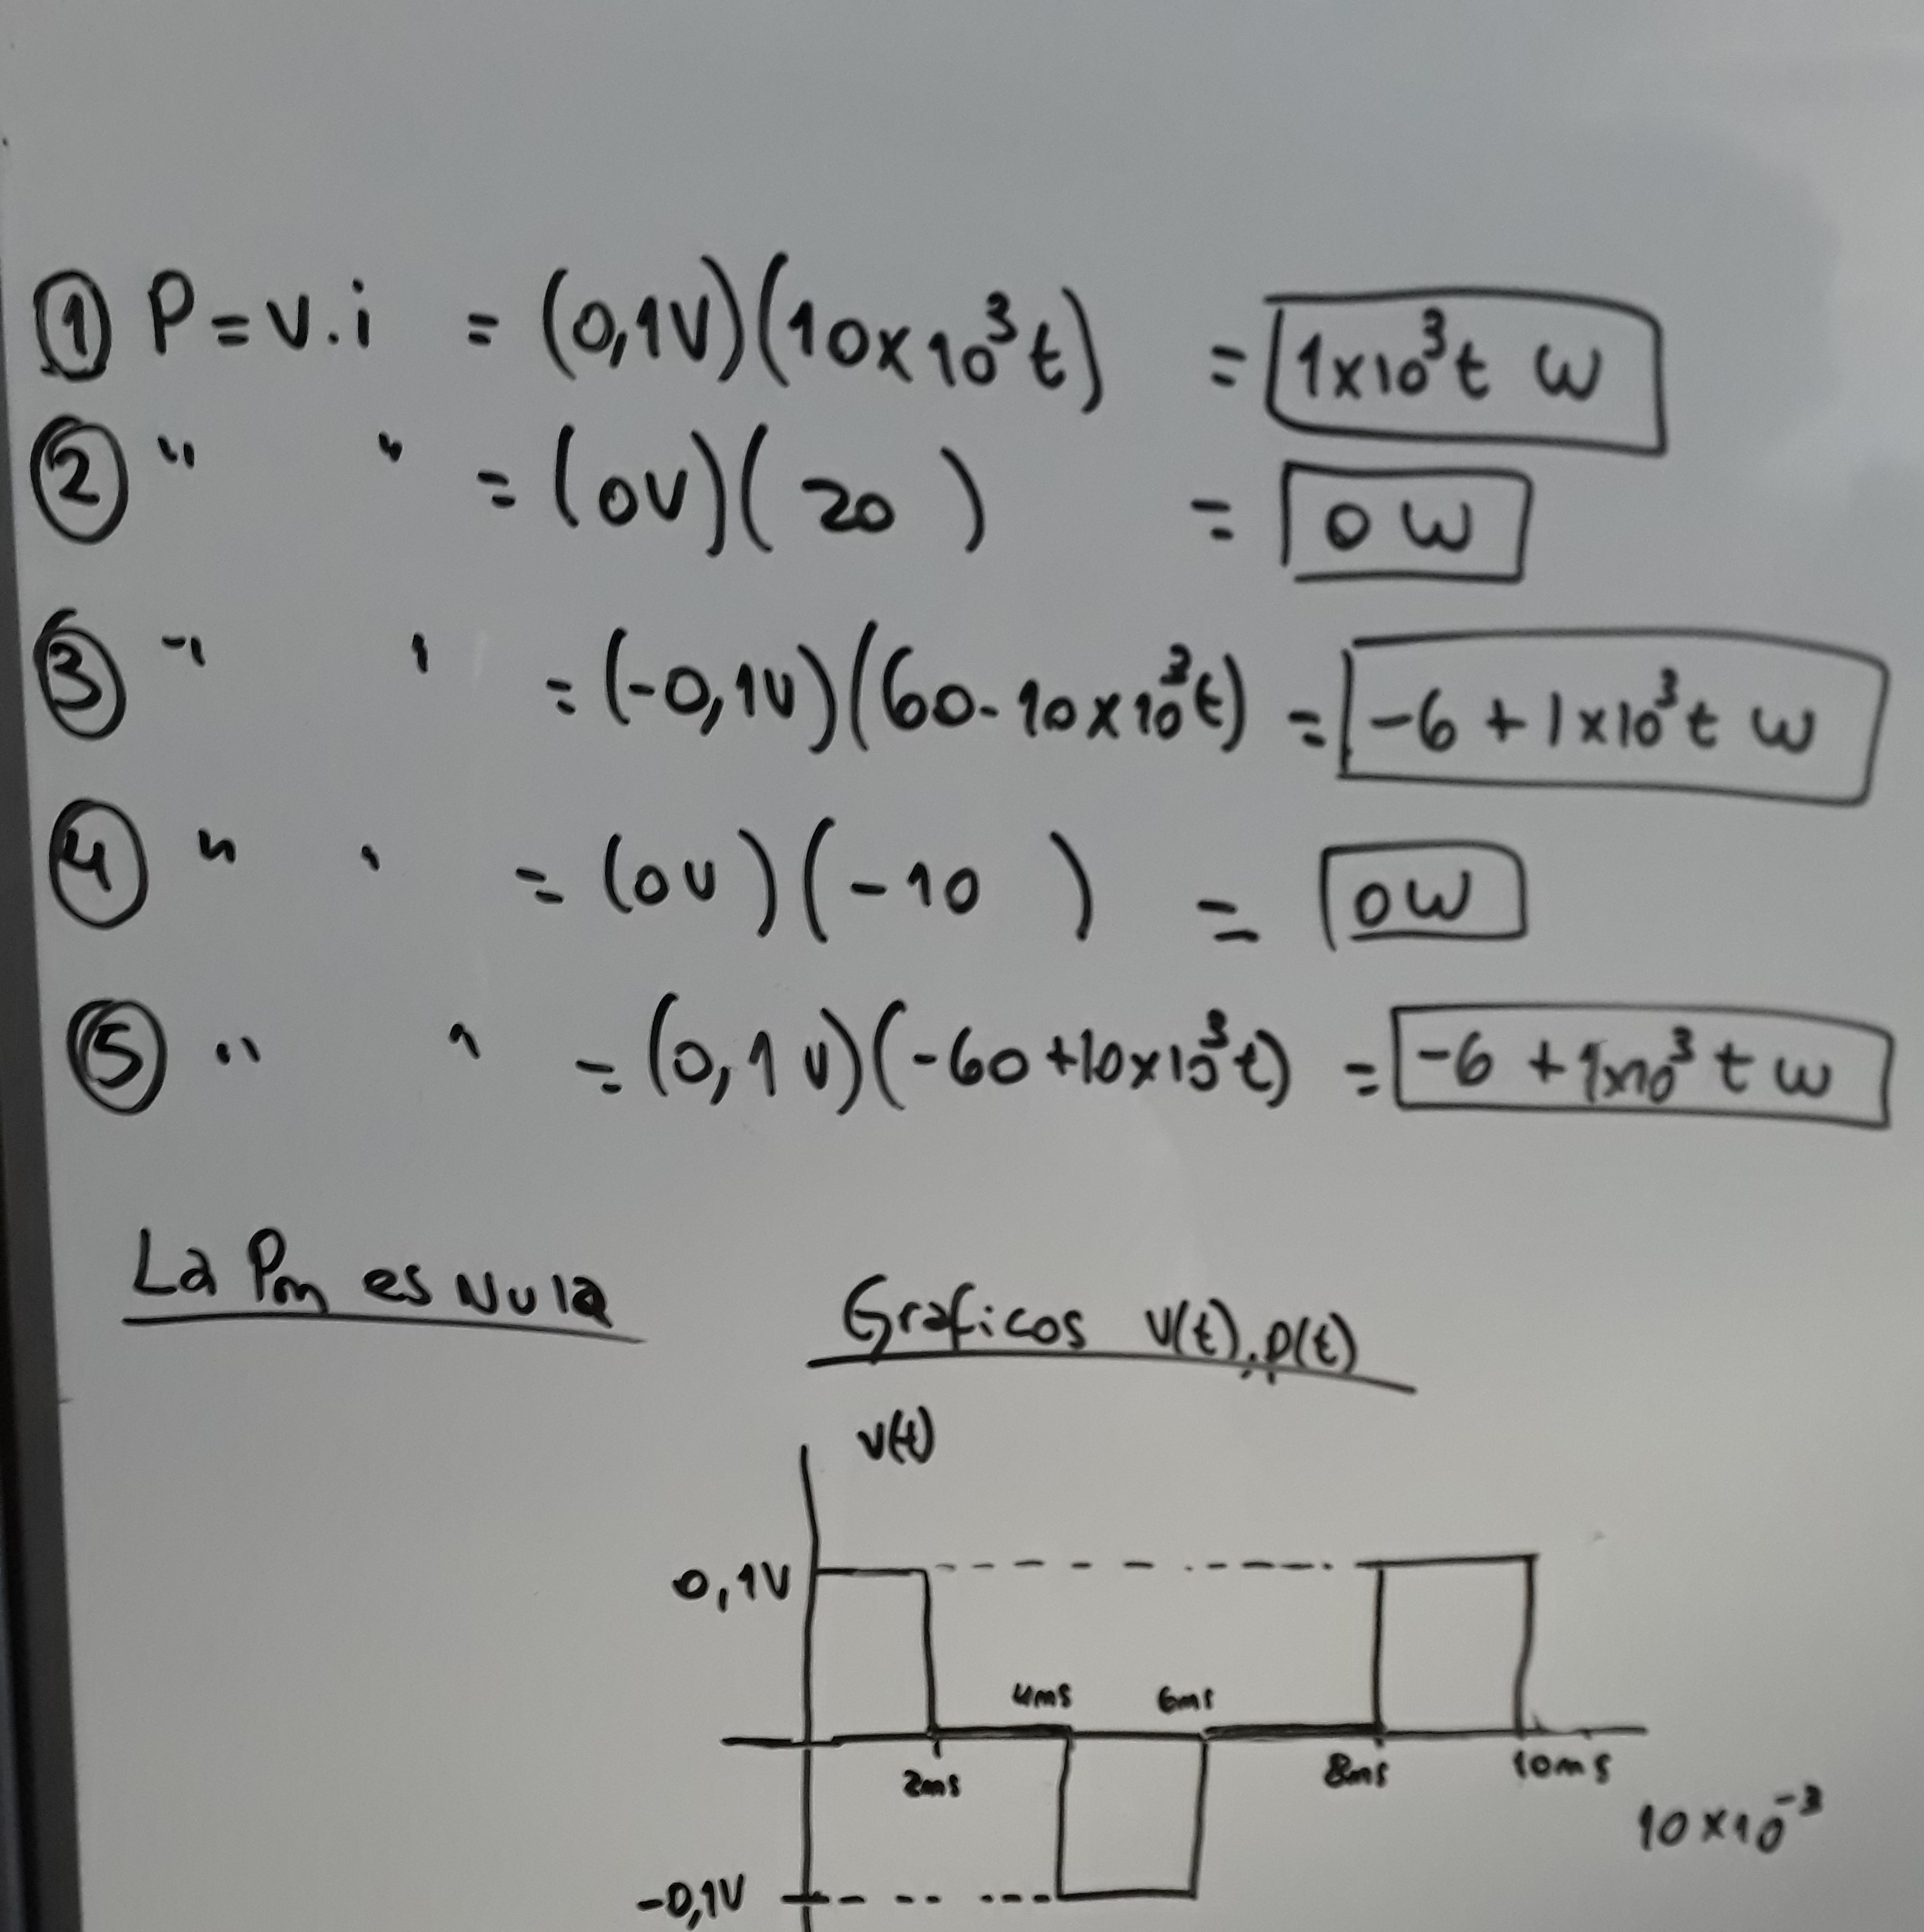 ① P = v.i = (0,1V)(10x10³t) = 1x10³t w
② " " = (0V)(20) = 0 w
③ " " = (-0,1V)(60-10x10³t) = -6 + 1x10³t w
④ " " = (0V)(-10) = 0 w
⑤ " " = (0,1V)(-60+10x10³t) = -6 + 1x10³ t w
La Pm es Nula
Graficos v(t), p(t)
v(t)
0,1V
4ms 6ms
2ms 8ms 10ms
10x10⁻³
-0,1V